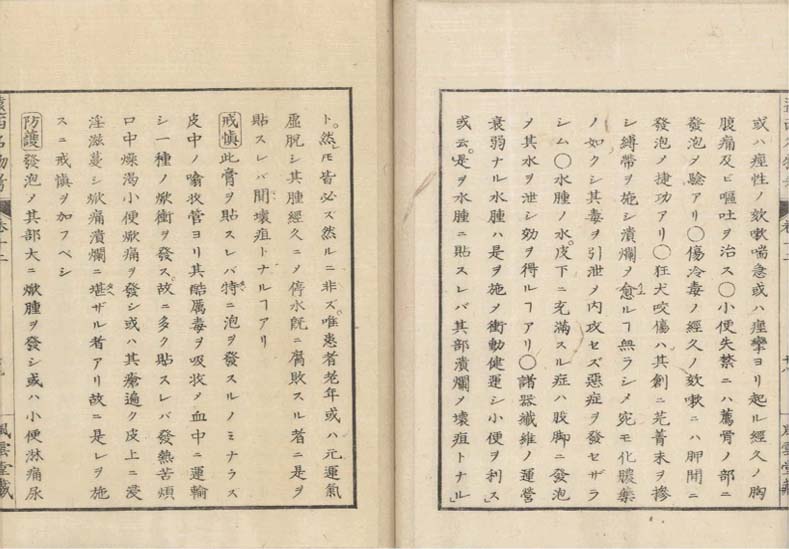 或ハ痙性ノ欬嗽喘急或ハ痙攣ヨリ起ル經久ノ胸
腹痛及ビ嘔吐ヲ治ス〇小便失禁ニハ薦骨ノ部ニ
發泡ノ驗アリ〇傷冷毒ノ經久ノ欬嗽ニハ胛間ニ
發泡ノ捷功アリ〇狂犬咬傷ハ其創ニ芫菁末ヲ摻
シ縛帶ヲ施シ潰爛ヲ愈ルヿ無ラシメ宛モ化膿藥
ノ如クシ其毒ヲ引泄ノ內攻セズ惡症ヲ發セザラ
シム〇水腫ノ水。皮下ニ充滿スル症ハ股脚ニ發泡
ヲ其水ヲ泄シ効ヲ得ルヿアリ〇諸器纖維ノ運營
衰弱ナル水腫ハ是ヲ施ノ衝動健運シ小便ヲ利ス
或云。是ヲ水腫ニ貼スレバ其部潰爛ノ壞疽トナル」
ト。然𪜈皆必ズ然ルニ非ズ。唯患者老年或ハ元運氣
虛脫シ其腫經久ニノ停水既ニ腐敗スル者ニ是ヲ
貼スレバ間壞疽トナルヿアリ
戒愼此膏ヲ貼スレバ特ニ泡ヲ發スルノミナラス
皮中ノ噏收管ヨリ其酷厲毒ヲ吸收ノ血中ニ運輸
シ一種ノ焮衝ヲ發ス。故ニ多ク貼スレバ發熱苦煩
口中燥渴小便焮痛ヲ發シ或ハ其瘡遍ク皮上ニ浸
淫滋蔓シ焮痛潰爛ニ堪ザル者アリ故ニ是レヲ施
スニ戒愼ヲ加フベシ
防護發泡ノ其部大ニ焮腫ヲ發シ或ハ小便淋痛尿
遠西名物考
卷十二
風雲堂藏